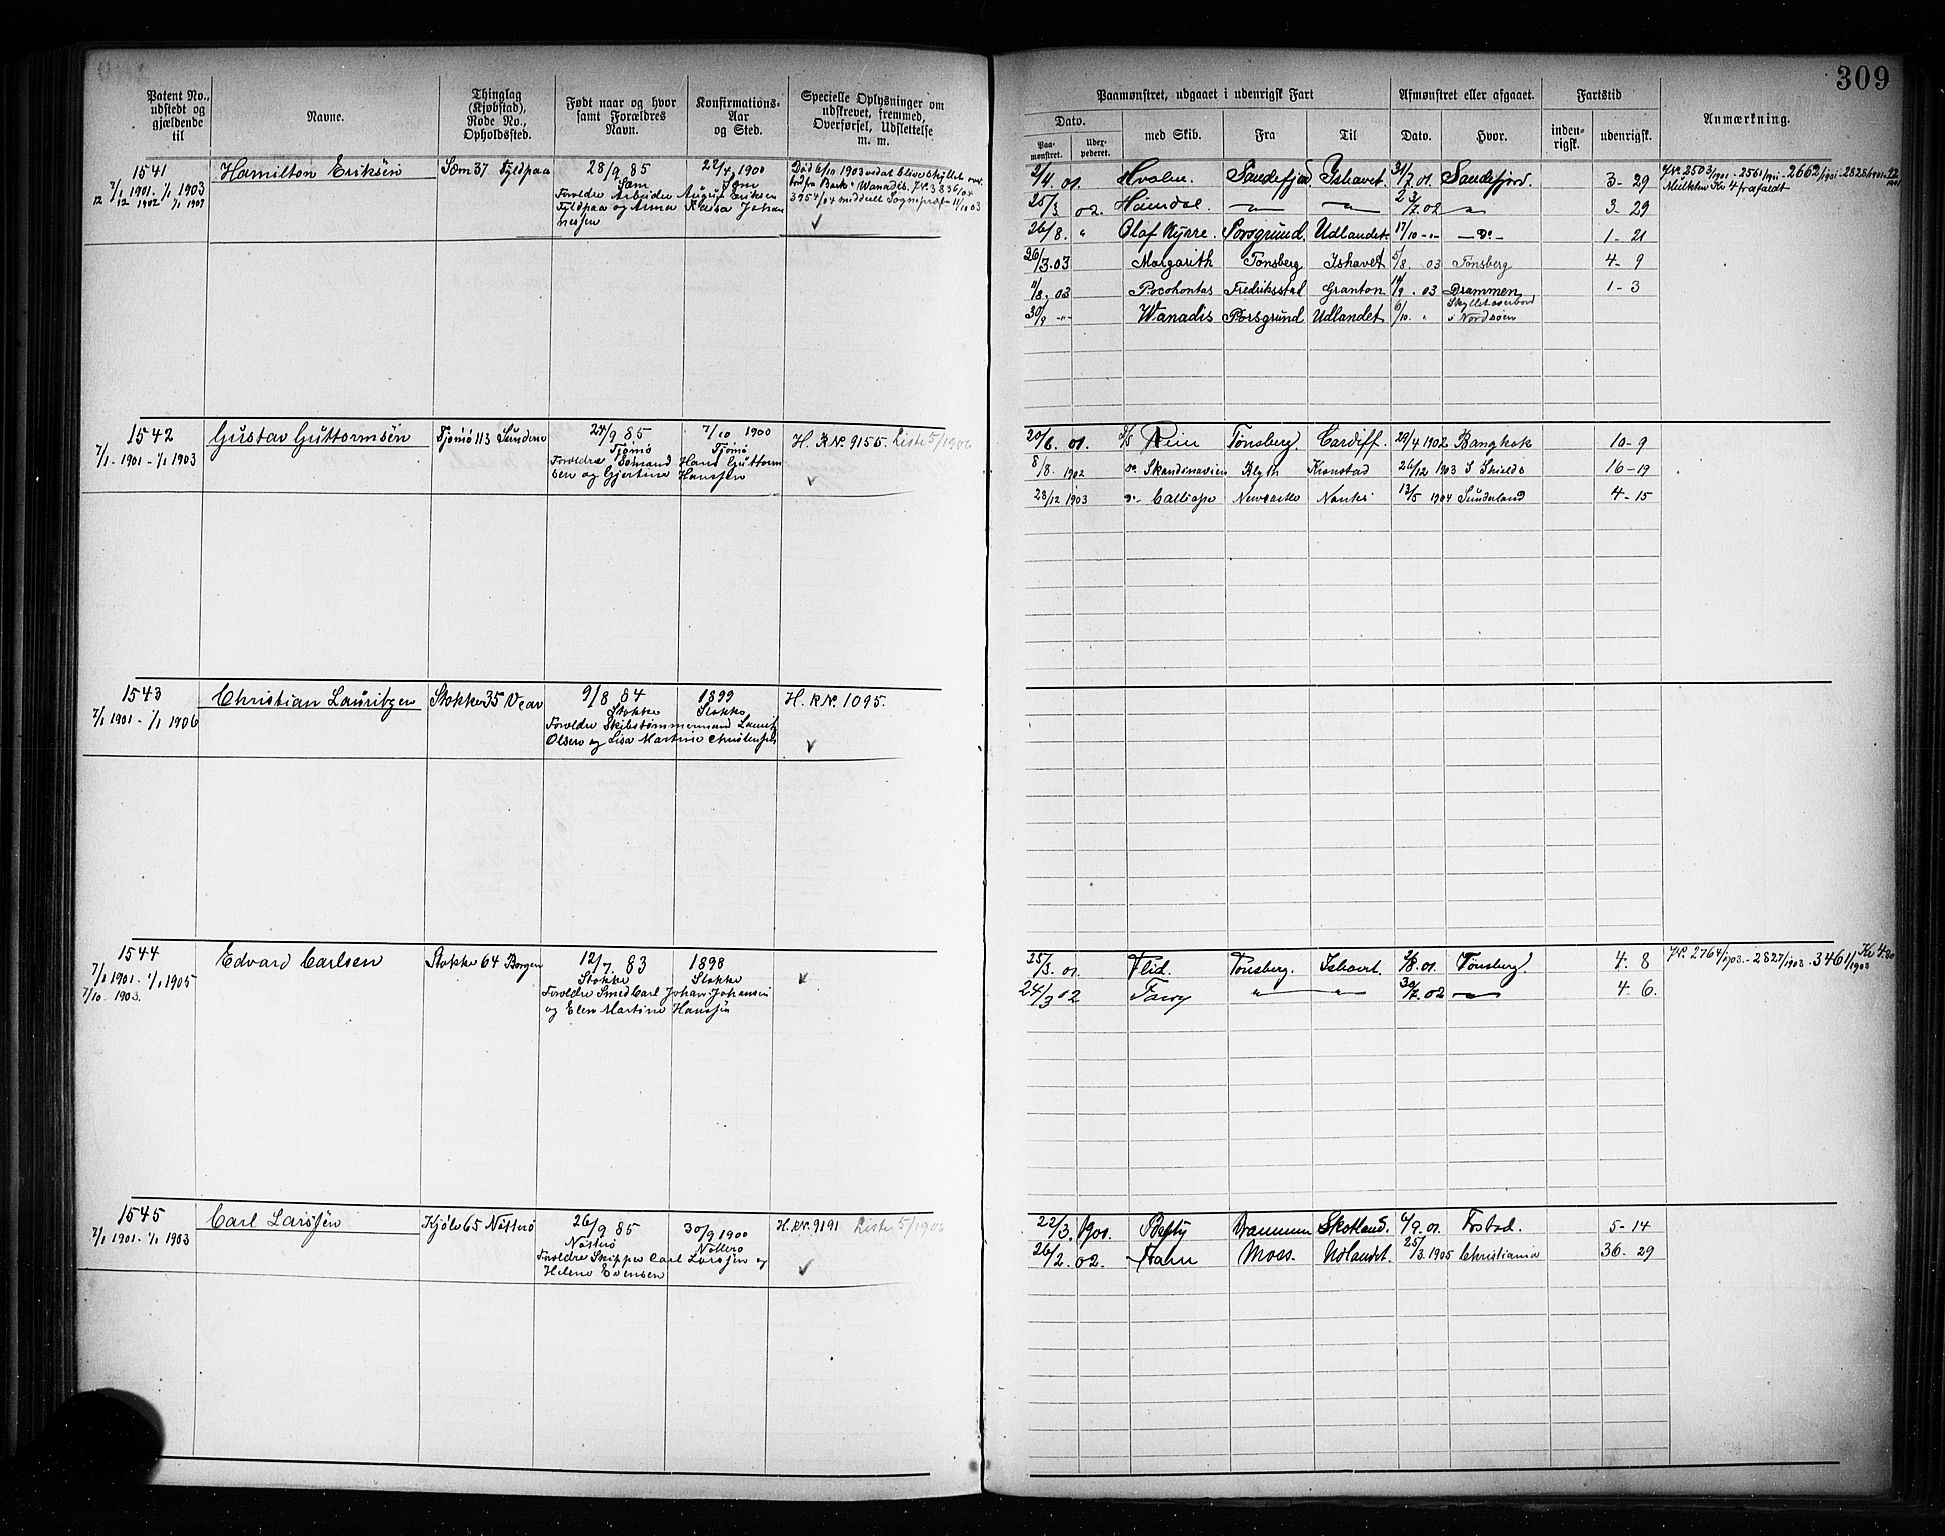 309
Patent No., udstedt og gjældende til
Navne.
Thinglag (Kjøbstad), Rode No., Opholdssted.
Født naar og hvor samt Forældres Navn.
Konfirmations- Aar og Sted.
Specielle Oplysninger om udskrevet, fremmed, Overførsel, Udslettelse m. m.
Paamønstret, udgaaet i udenrigsk Fart
Afmønstret eller afgaaet.
Fartstid
Anmærkning.
Dato.
Paa- mønstret.
Uder- pederet.
med Skib.
Fra
Til
Dato.
Hvor.
inden- rigsk.
udenrigsk.
1541
7/1 1901. 1/1 1903
12/12 1902 1/1 1907
Hamilton Eriksen
Sœm 37 Fyldpaa
28/9 85
Sœm
22/4 1900
Sœm
Forœldre Arbeider August Eriksen
Fyldpaa og Anna Lovisa Johan
nessen
Død 6/10 1903 ved at blive skyllet over
bord fra Bark "Wanadis. J.N. 3836/04
3954/04 middelt Sogneprest 11/10 03
2/4. 01. Hvalen. Sandefjord Ishavet 31/7. 01. Sandefjord. 3-29
J.N. 2503/1901 - 2561/1901 - 2662/1901 - 2828/1901
Mulkten Kr 4 frafaldt
25/3 02. Heimdal. 23/7. 02 3-29
26/8. " Olaf Kyrre. Porsgrund. Udlandet 17/10 -"- -Do- 1-21
26/3. 03 Margarith Tønsberg Ishavet 5/8. 03 Tønsberg 4-9
11/8. 03 Pocohontas Fredriksstad Granton 14/9. 03 Drammen 1-3
30/9 -"- Wanadis Porsgrund Udlandet 6/10. " Skyllet overbord
i Nordsøen
1542
7/1 1901 - 1/1 1903
Gustav Guttormsen
Tjømø 113 Sundene
24/9 85
Tjømø
7/10 1900
Tjømø
Forœldre Sømand Hans Guttorm
sen og Gjertine Hanssen
H. RN. 9155. Liste 5/1906
20/6. 01. D/S Rein Tønsberg. Cardiff. 29/4 1902 Bangkok 10-9
8/8. 1902 Do Skandinavien Blyth Kronstad 26/12 1903 S Shields 16-19
28/12 1903 Do- Calliope Newcastle 13/5 1904 Sunderland 4-15
1543
7/1 1901 - 1/1 1906
Christian Lauritzen
Stokke 35 Vear
9/8 84
Stokke
1899
Stokke
Forœldre Skibstømmermand Laurits
Olsen og Lisa Martine Christensen
H. RN. 1095.
1544
7/1 1901. 1/1 1905
7/10 - 1903.
Edvard Carlsen
Stokke 64 Borgen
12/7. 83
Stokke
1898
Stokke
Forœldre Smed Carl Johan Johansen
og Elen Martine Hanssen
25/3. 01. Flid. Tønsberg. Ishavet. /8. 01. Tønsberg 4. 8
J.N. 2764/1903. - 2827/1903. 3461/1903
24/3 02 Fawy " " 30/7. 02 4. 6.
1545
7/1 1901 - 1/1 1903
Carl Larssen
Kjøle 65 Nøtterø
26/9 85
Nøtterø
30/9 1900
Nøtterø
Forœldre Skipper Carl Larssen og
Helene Evensen
H. RN. 9191 Liste 5/1906
22/3. 1901. Betty Drammen Skotland. 4/9. 01. 5-14
26/2. 02. Hahn Moss. Udlandet. 25/3. 1905 Christiania 36-29